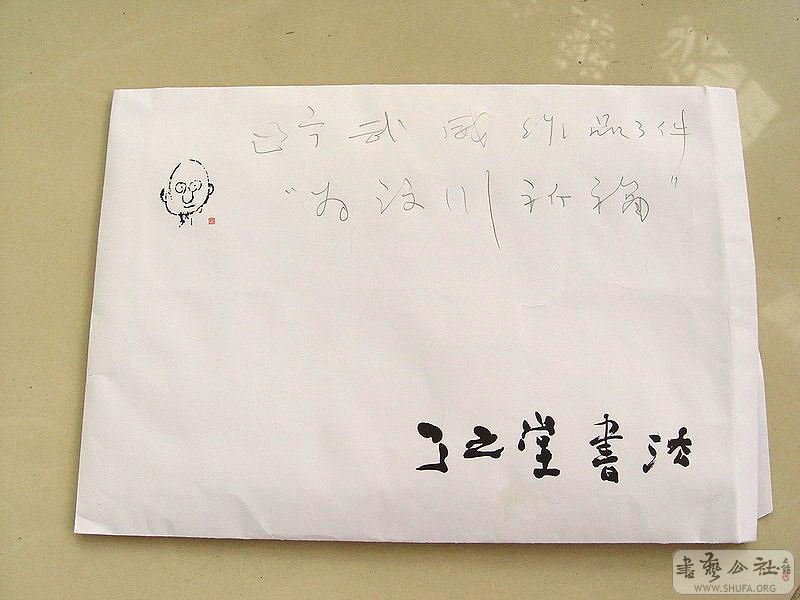 辽宁武威作品3件
“为汶川祈福”
了之堂书法
書藝公社
WWW.SHUFA.ORG